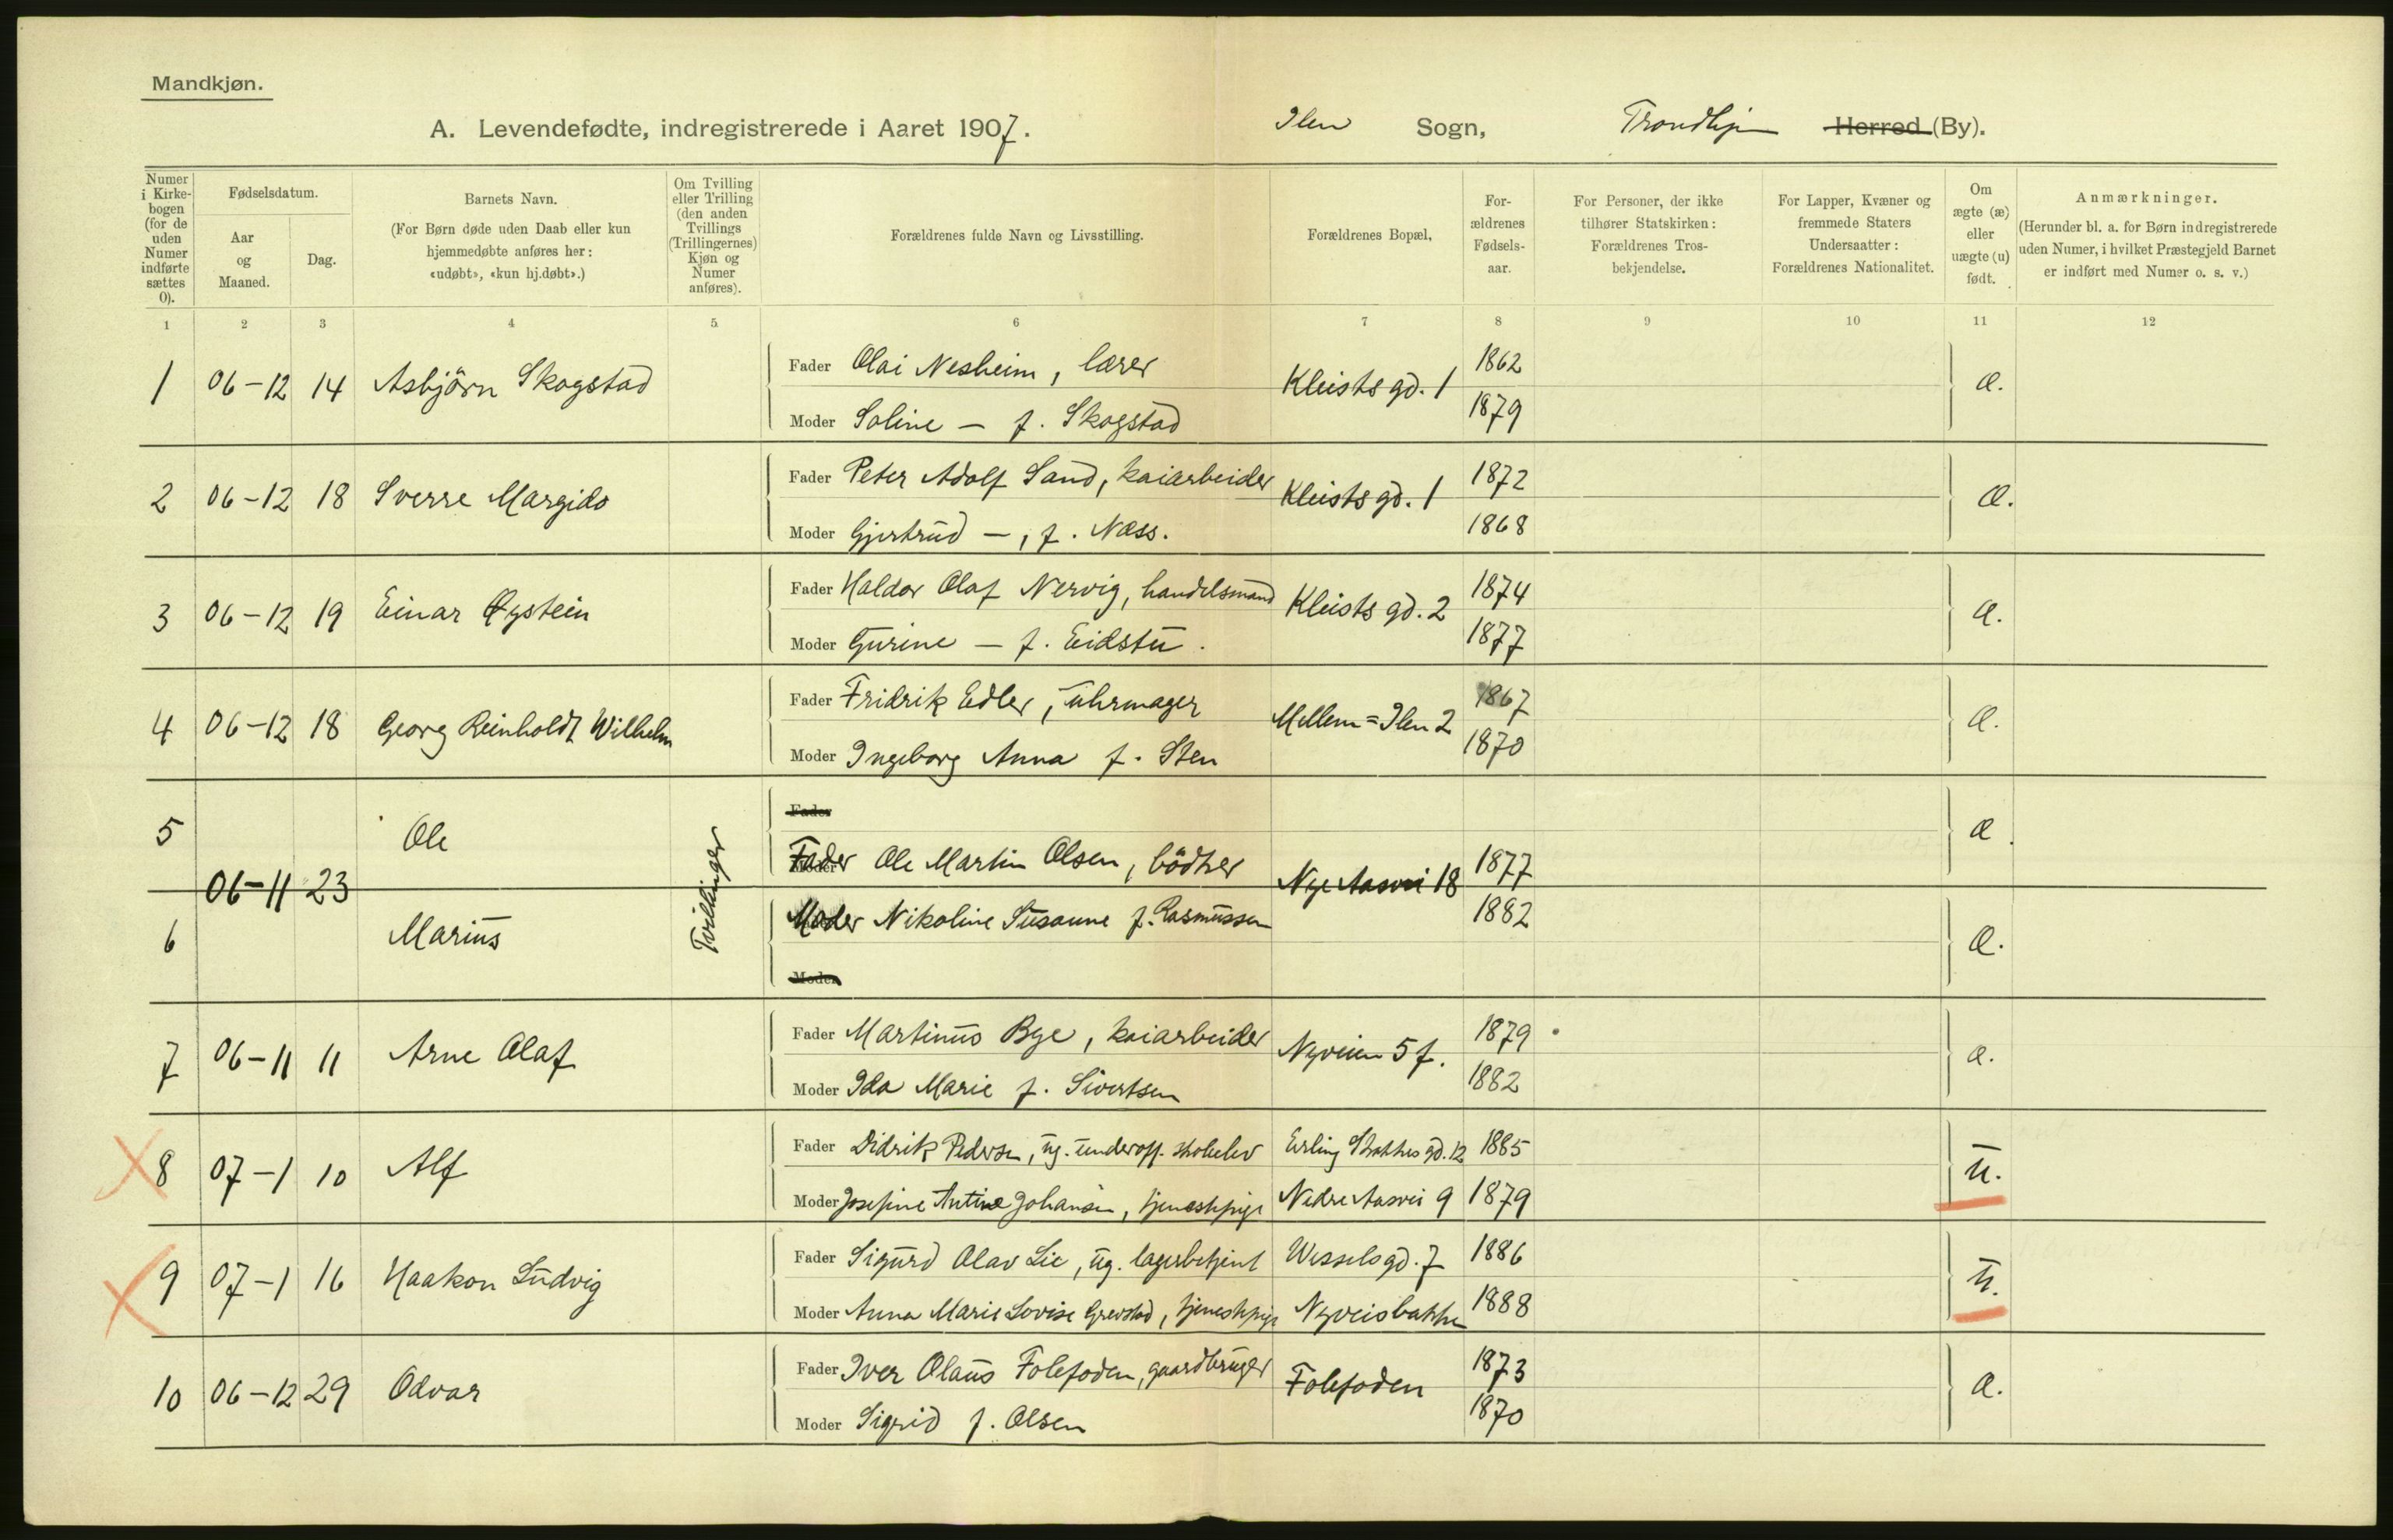 Mandkjøn.
A. Levendefødte, indregistrerede i Aaret 1907. Ilen Sogn, Trondhjem Herred (By).
Numer i Kirke-bogen (for de uden Numer indførte sættes 0).
Fødselsdatum.
Aar og Maaned.
Dag.
Barnets Navn.
(For Børn døde uden Daab eller kun
hjemmedøbte anføres her:
«udøbt», «kun hj.døbt».)
Om Tvilling
eller Trilling
(den anden
Tvillings
(Trillingernes)
Kjøn og
Numer
anføres).
Forældrenes fulde Navn og Livsstilling.
Forældrenes Bopæl,
For-
ældrenes
Fødsels-
aar.
For Personer, der ikke
tilhører Statskirken:
Forældrenes Tros-
bekjendelse.
For Lapper, Kvæner og
fremmede Staters
Undersaatter:
Forældrenes Nationalitet.
Om
ægte (æ)
eller
uægte (u)
født.
Anmærkninger.
(Herunder bl. a. for Børn indregistrerede
uden Numer, i hvilket Præstegjeld Barnet
er indført med Numer o. s. v.)
1 2 3 4 5 6 7 8 9 10 11 12
1 06-12 14 Asbjörn Skogstad Fader Olai Nesheim, lærer Kleists gd. 1 1862 æ.
Moder Soline — f. Skogstad 1879
2 06-12 18 Sverre Margido Fader Peter Adolf Sand, kaiarbeider Kleists gd. 1 1872 æ.
Moder Gjertrud —, f. Næss. 1868
3 06-12 19 Einar Øystein Fader Haldor Olaf Nervig, handelsmand Kleists gd. 2 1874 æ.
Moder Gurine — f. Eidstu. 1877
4 06-12 18 Georg Reinholdt Wilhelm Fader Fridrik Edler, uhrmager Mellem=Ilen 2 1867 æ.
Moder Ingeborg Anna f. Sten 1870
5 Ole Fader æ.
06-11 23 Tvillinger Fader Ole Martin Olsen, bödker Nye Aasvei 18 1877
6 Marius Moder Nikoline Susanne f. Rasmussen 1882 æ.
Moder
7 06-11 11 Arne Olaf Fader Martinus Bye, kaiarbeider Nyveien 5 f. 1879 æ.
Moder Ida Marie f. Sivertsen 1882
8 07-1 10 Alf Fader Didrik Pedersen, ug. underoff. skoleelev Erling Skakkes gd. 12 1885 u.
Moder Josefine Antine Johansen, tjenestepige Nedre Aasvei 9 1879
9 07-1 16 Haakon Ludvig Fader Sigurd Olav Lie, ug. lagerbetjent Wessels gd. 7 1886 u.
Moder Anna Marie Lovise Grevstad, tjenestepige Nyveisbakken 1888
10 06-12 29 Odvar Fader Iver Olaus Folefoden, gaardbruger Folefoden 1873 æ.
Moder Sigrid f. Olsen 1870